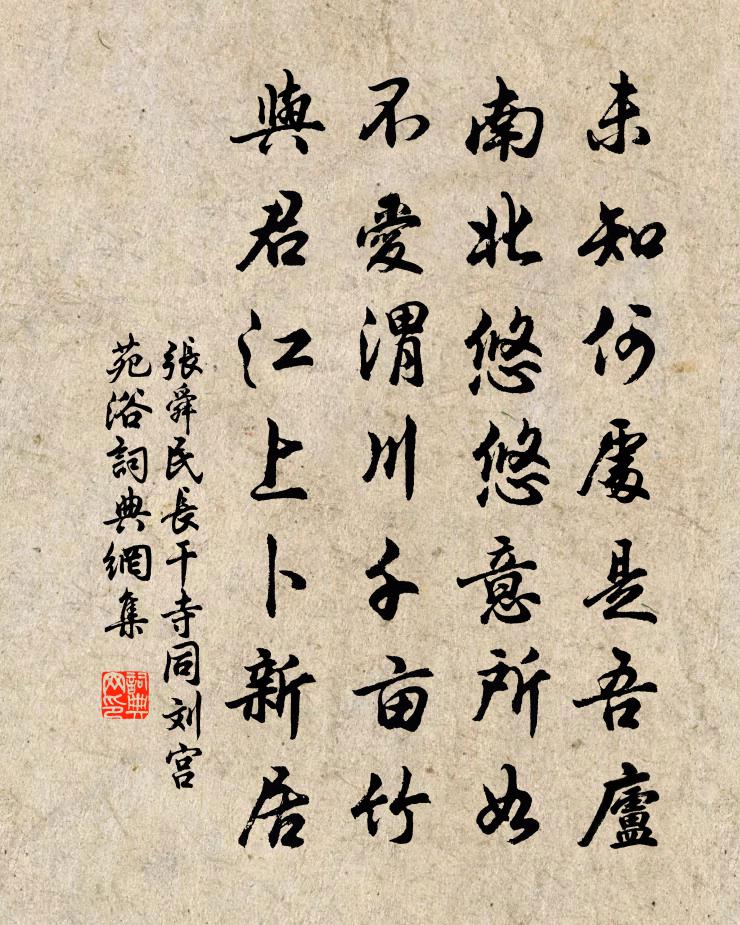 未知何處是吾廬
南北悠悠意所如
不愛渭川千亩竹
與君江上卜新居
張舜民長干寺同刘宫
苑浴詞典網集
詞典网印